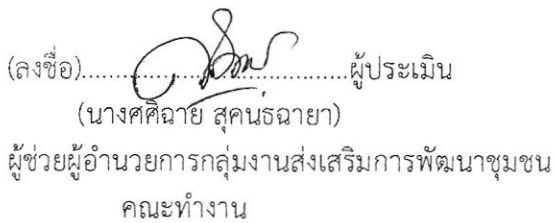 (ลงชื่อ)..............................ผู้ประเมิน
(นางศศิฉาย สุคนธฉายา)
ผู้ช่วยผู้อำนวยการกลุ่มงานส่งเสริมการพัฒนาชุมชน
คณะทำงาน